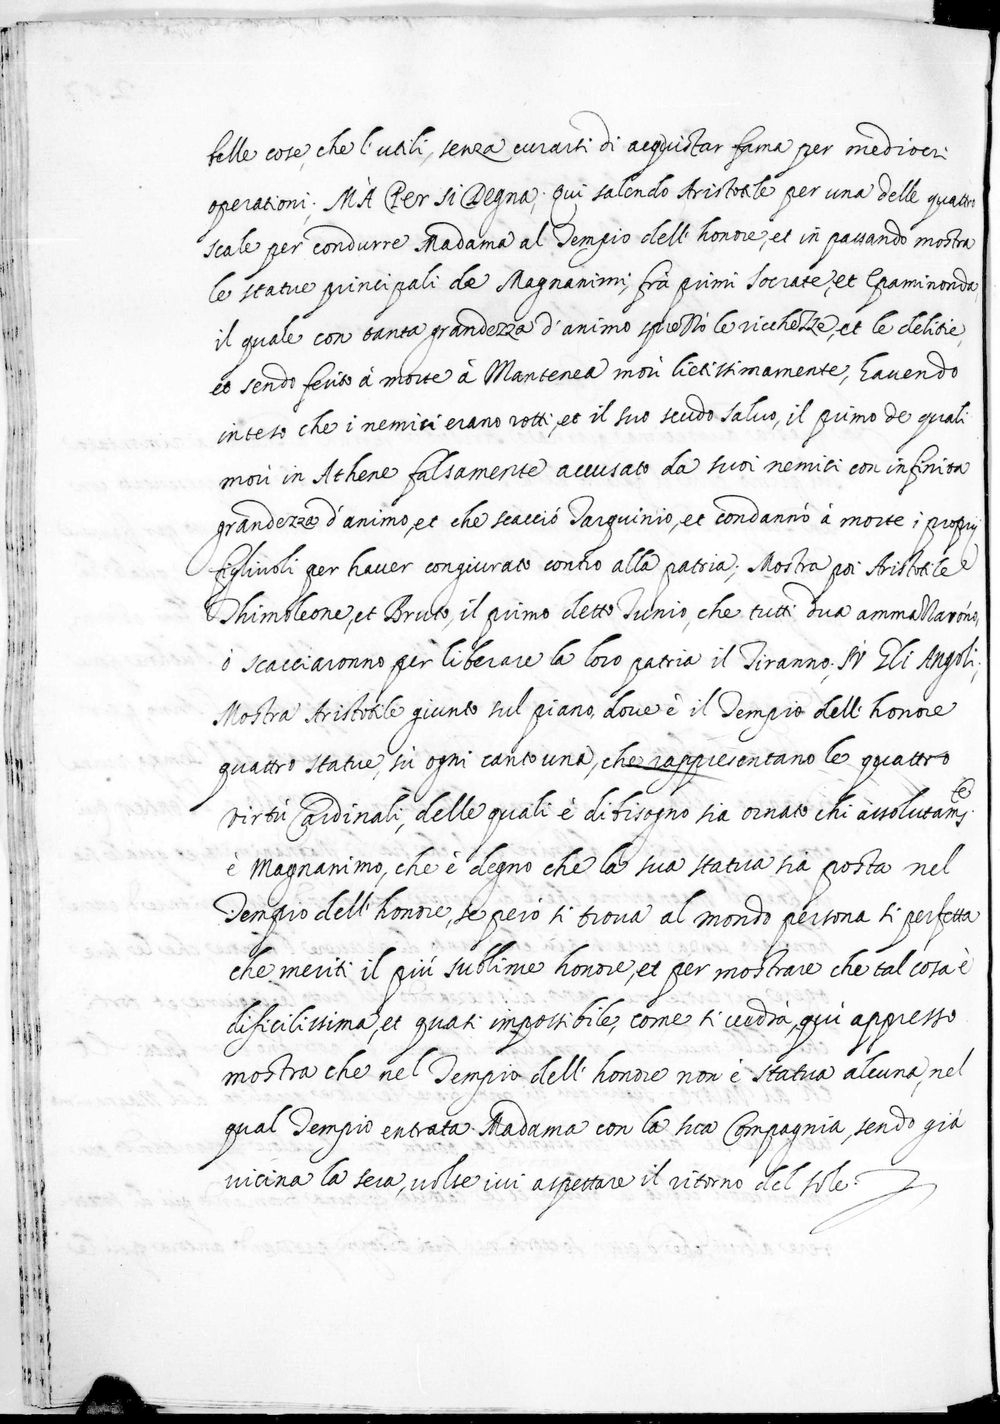 belle cose, che l'utili, senza curarsi di acquistar fama per mediocri
operationi; MÀ Per si Degna; qui salendo Aristotile per una delle quattro
scale per condurre Madama al Tempio dell' honore, et in passando mostra
le statue principali de Magnanimi, frà primi Socrate, et Epaminonda
il quale con tanta grandezza d'animo sprezzò le ricchezze, et le delitie,
et sendo ferito à morte à Mantenea morì lietissimamente, havendo
inteso che i nemici erano rotti, et il suo scudo salvo, il primo de quali
morì in Athene falsamente accusato da suoi nemici con infinita
grandezza d'animo, et che scacciò Tarquinio, et condannò à morte i proprij
figlivoli per haver congiurato contro alla patria; Mostra poi Aristotile
Thimoleone, et Bruto, il primo detto Junio, che tutti dua ammazzarono,
ò scacciaronno per liberare la loro patria il Tiranno; SÙ Gli Angoli;
Mostra Aristotile giunto sul piano, dove è il Tempio dell' honore
quattro statue, sù ogni canto una, che rappresentano le quattro
virtù Cardinali, delle quali è di bisogno sia ornato chi assolutamte
è Magnanimo, che è degno che la sua statua sia posta nel
Tempio dell' honore, se però si trova al mondo persona si perfetta
che meriti il più sublime honore, et per mostrare che tal cosa è
dificilissima, et quasi impossibile, come si vedrà, quì appresso
mostra che nel Tempio dell' honore non è statua alcuna, nel
qual Tempio entrata Madama con la sua Compagnia, sendo già
vicina la sera, volse ivi aspettare il ritorno del sole.